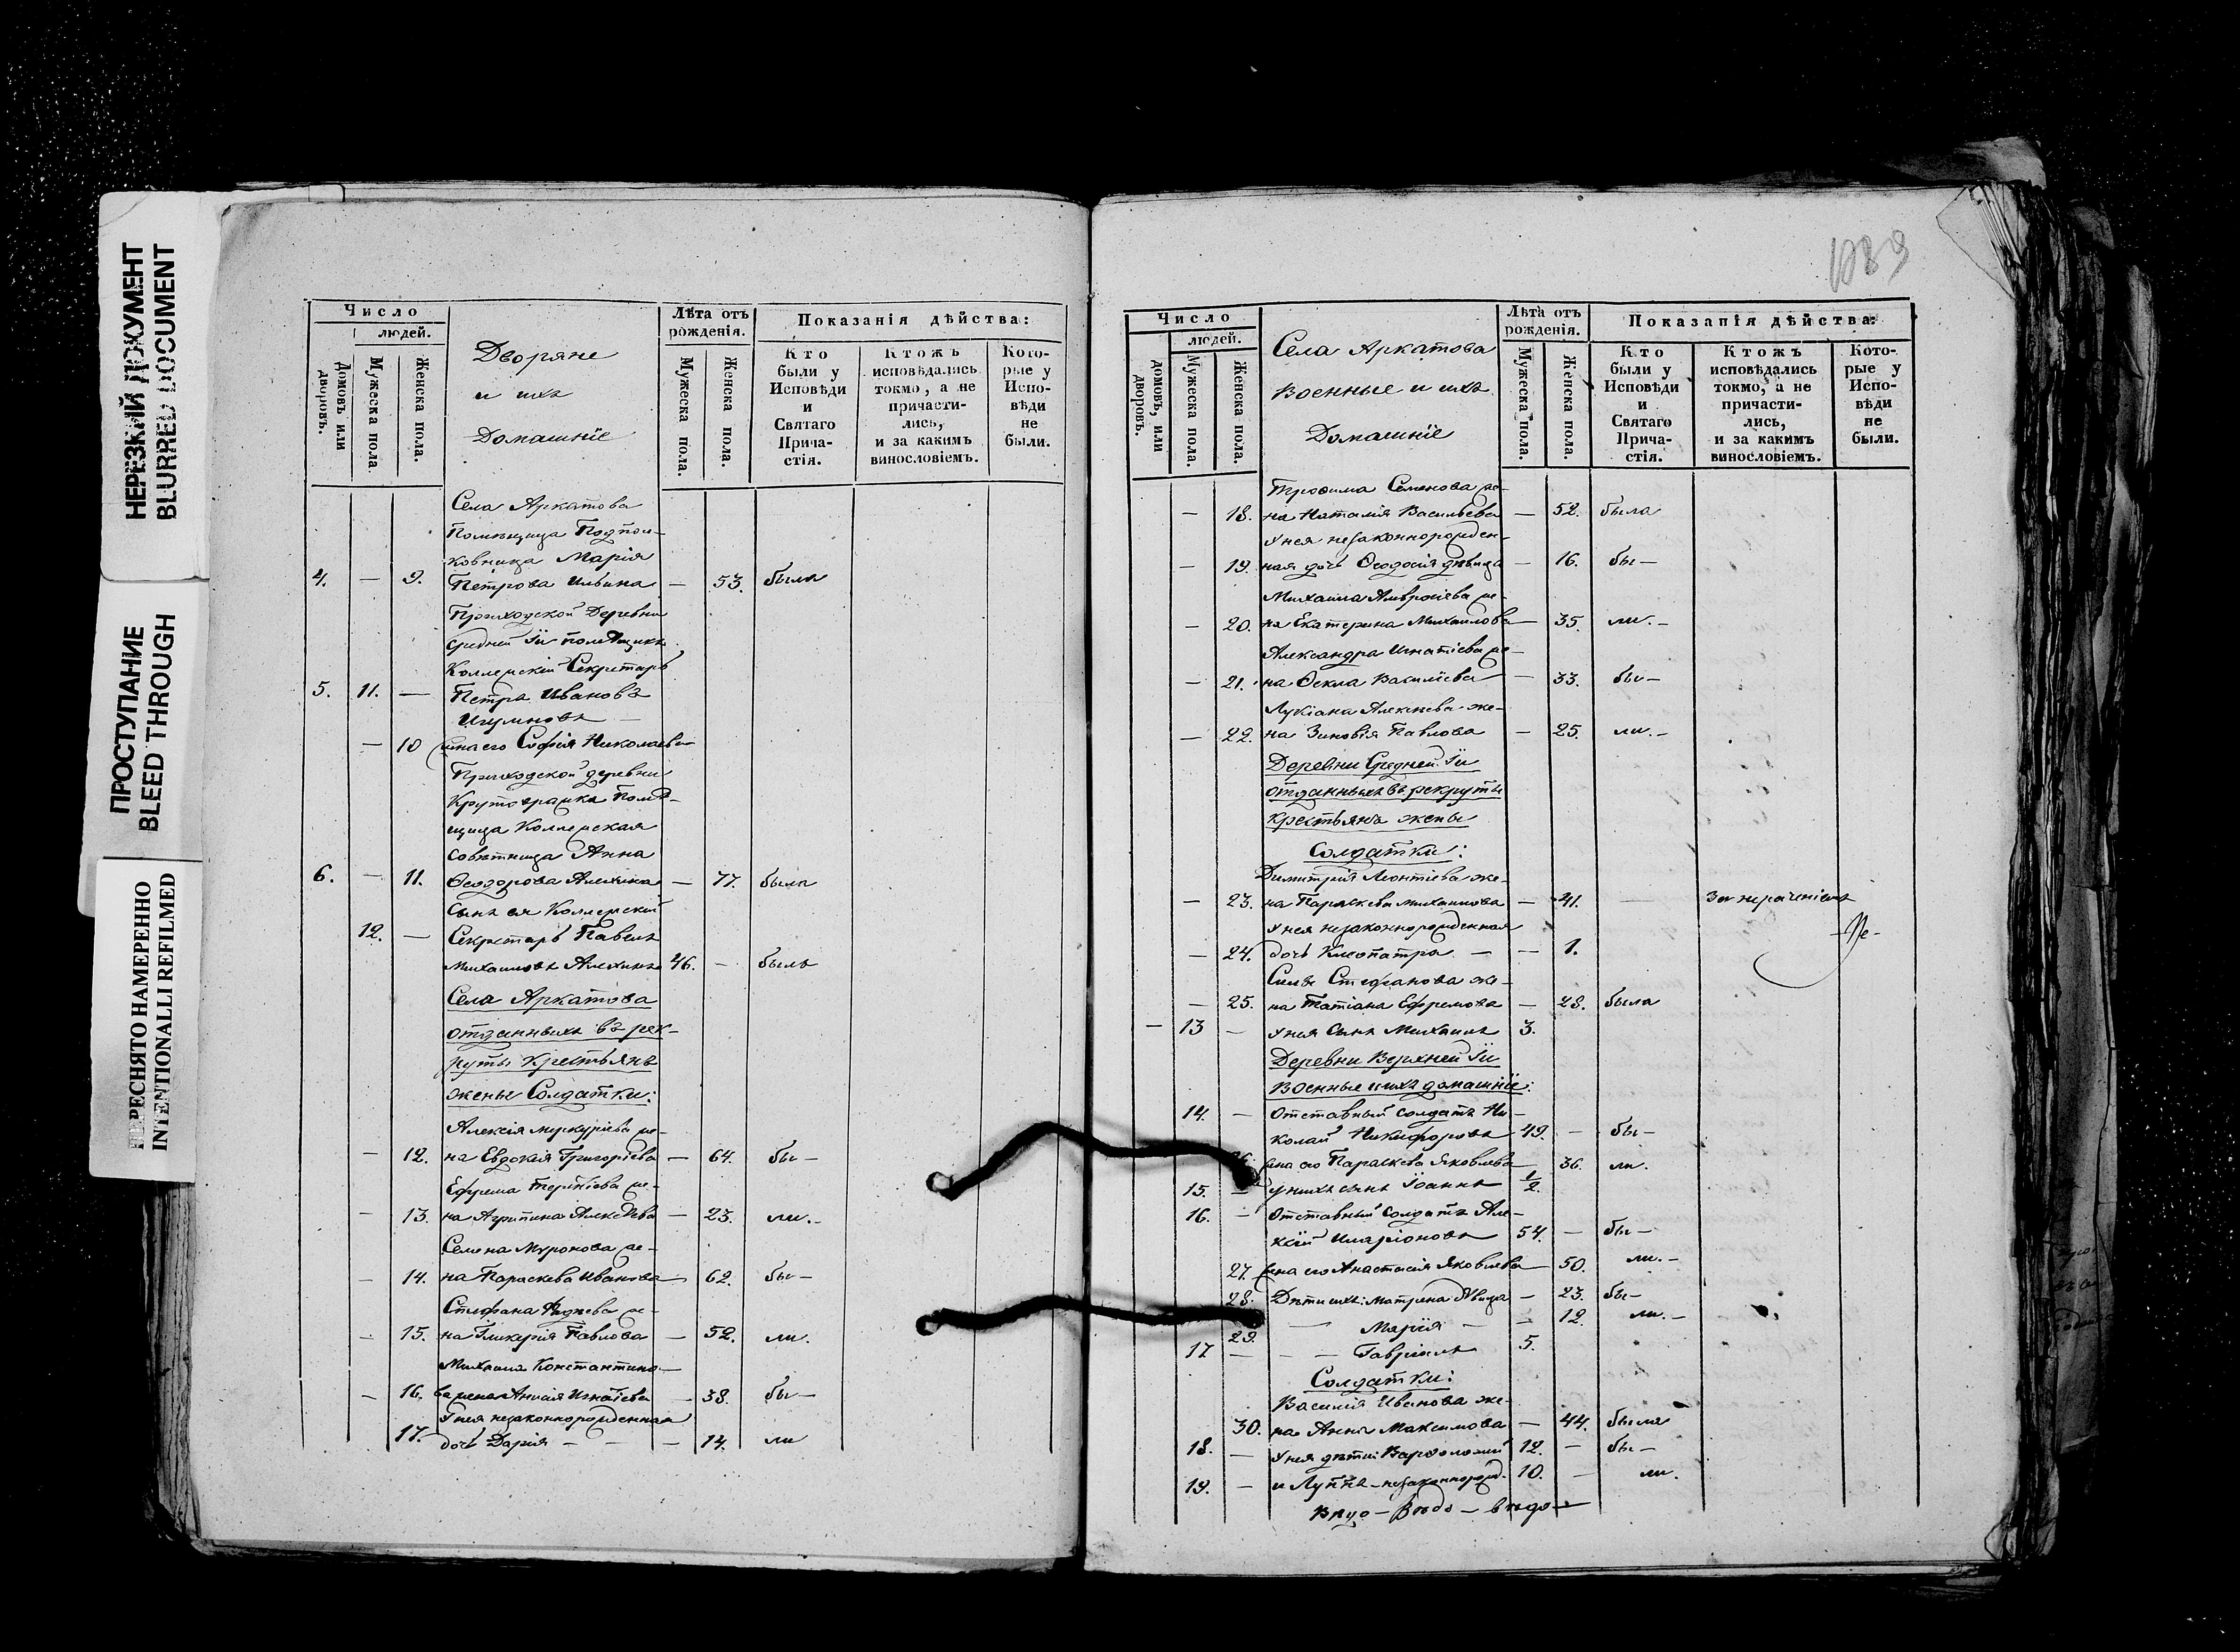 НЕРЕЗКИЙ ДОКУМЕНТ
BLURRED DOCUMENT
ПРОСТУПАНИЕ
BLEED THROUGH
ПЕРЕСНЯТО НАМЕРЕННО
INTENTIONALLI REFILMED
Число
людей.
Домовъ или дворовъ.
Мужеска пола.
Женска пола.
Дворяне
и ихъ
Домашніе
Лѣта отъ рожденія.
Мужеска пола.
Женска пола.
Показанія дѣйства:
Кто
были у
Исповѣди
и
Святаго
Прича-
стія.
Ктожъ
исповѣдались
токмо, а не
причасти-
лись,
и за какимъ
винословіемъ.
Кото-
рые у
Испо-
вѣди
не
были.
Села Аркатова
Помѣщица Подпол-
ковница Марія
4. — 9. Петрова Ильина — 53. была
Приходской Деревни
Средней Іи помѣщикъ
Коллежскій Секретарь
5. 11. — Петръ Ивановъ
— 10 жена его Софія Николаева
Приходской деревни
помѣ-
щица Коллежская
Совѣтница Анна
6. — 11. Ѳеодорова Алехина — 77. была
Сынъ ея Коллежскій
12. — Секретарь Павелъ
Михаиловъ Алехинъ 46. — былъ
Села Аркатова
отданныхъ въ рек-
руты Крестьянъ
жены Солдатки:
Алексія Меркуріева же-
— 12. на Евдокія Григоріева — 64. бы —
Ефрема Терентіева же-
— 13. на Агрипина Алексѣева — 23. ли. —
Семена Миронова же-
— 14. на Параскева Иванова — 62. бы —
Стефана же-
— 15. на Гликерія Павлова — 52. ли.
Михаила Константино-
— 16. ва жена Анисія Игнатіева — 38. бы —
У нея незаконнорожденная
17. дочь Дарія — — — 14. ли
1089
Число
людей.
домовъ, или дворовъ.
Мужеска пола.
Женска пола.
Села Аркатова
Военные и ихъ
Домашніе
Лѣта отъ рожденія.
Мужеска пола.
Женска пола.
Показанія дѣйства:
Кто
были у
Исповѣди
и
Святаго
Прича-
стія.
Ктожъ
исповѣдались
токмо, а не
причасти-
лись,
и за какимъ
винословіемъ.
Кото-
рые у
Испо-
вѣди
не
были.
Трофима Семенова же-
— 18. на Наталія Васильева — 52. была
У нея незаконнорожден-
— 19. ная дочь Ѳеодосія дѣвица — 16. бы —
Михаила Амвросіева же-
— 20. на Екатерина Михаилова — 35. ли. —
Александра Игнатіева же-
— 21. на Ѳекла Василіева — 33. бы —
Лукіана Алексѣева же-
— 22. на Зиновія Павлова — 25. ли. —
Деревни Средней Іи
отданныхъ въ рекруты
крестьянъ жены
Солдатки:
Димитрія Леонтіева же-
— 23. на Параскева Михаилова — 41. — за нераченіемъ
У нея незаконнорожденная
— 24. дочь Клеопатра — — 1.
Силы Стефанова же-
— 25. на Татіана Ефремова — 28. была
— 13 — У нея сынъ Михаилъ 3.
Деревни Верхней Іи
Военные и ихъ домашніе:
14. — Отставный солдатъ Ни-
колай Никифоровъ 49. — бы —
жена его Параскева Яковлева — 36. ли.
15. — у нихъ сынъ Іоаннъ 1/2.
16. — Отставный солдатъ Але-
ксій Иларіоновъ 54. — бы —
27. жена его Анастасія Яковлева — 50. ли. —
28. Дѣти ихъ: Матрена дѣвица — 23. бы —
29. — Марія — — 12. ли. —
17 — — — Гавріилъ 5.
Солдатки:
Василія Иванова же-
30. на Анна Максимова — 44. была
18. — У нея дѣти: Варѳоломей 12. — бы —
19. — и Луппъ — незаконнорожд. 10. — ли.